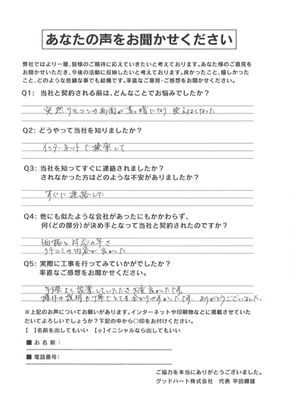 あなたの声をお聞かせください
弊社ではより一層、皆様のご期待に応えていきたいと考えております。あなた様のご意見を
お聞かせいただき、今後の活動に反映したいと考えております。良かったこと、嬉しかった
こと、どのような些細な事でも結構です。率直なご意見・ご感想をお聞かせください。
Q1: 当社と契約される前は、どんなことでお悩みでしたか?
突然リモコンの画面が真っ暗になり使えなくなった
Q2: どうやって当社を知りましたか?
インターネットで検索して
Q3: 当社を知ってすぐに連絡されましたか?
されなかった方はどのような不安がありましたか?
すぐに連絡した
Q4: 他にも似たような会社があったにもかかわらず、
何(どの部分)が決め手となって当社と契約されたのですか?
価格と対応の早さ
クチコミの内容が良かった
Q5: 実際に工事を行ってみていかがでしたか?
率直なご感想をお聞かせください。
手際よく設置していただき大変良かったです。
操作の説明も丁寧でとても分かりやすかったです。ありがとうございました。
※上記のお声についてお願いがあります。インターネットや印刷物などに掲載させていた
だいてよろしいでしょうか?下記の中から〇印をお付けください。
[ ]名前を出してもいい [ ]イニシャルなら出してもいい
■お名前:
■電話番号:
ご協力を本当にありがとうございました。
グッドハート株式会社 代表 平田輝雄